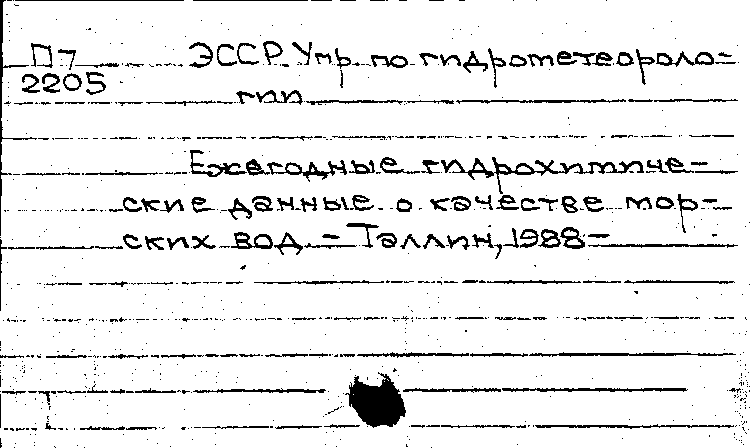 П7 ЭССР. Упр. по гидрометеороло-
2205 гии
Ежегодные гидрохимиче-
ские данные о качестве мор-
ских вод. – Таллин, 1988–